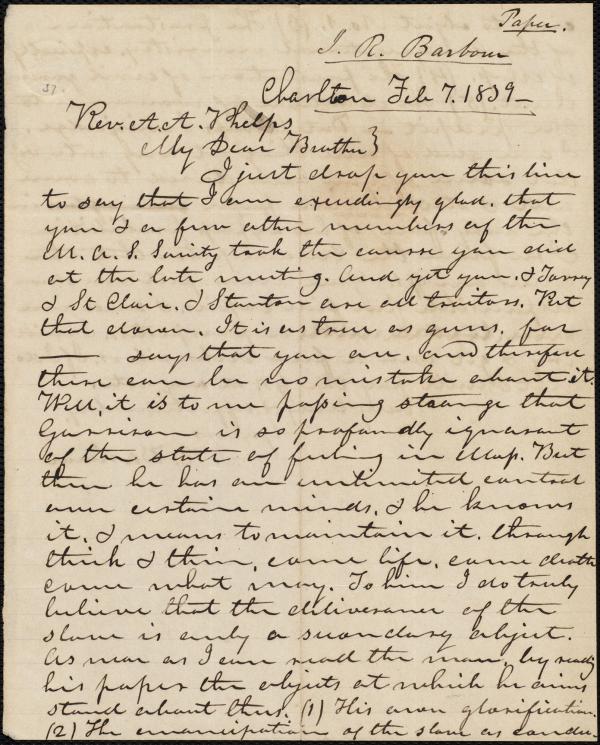 Paper.
I. R. Barbour
Charlton Feb 7. 1839—
Rev. A. A. Phelps
My Dear Brother}
I just drop you this line
to say that I am exceedingly glad, that
you & a few other members of the
M. A. S. Society took the course you did
at the late meeting. And yet you, & Torrey
& St Clair, & Stanton are all traitors. Put
that down. It is as true as guns, for
—— says that you are, and therefore
there can be no mistake about it.
Well, it is to me passing strange that
Garrison is so profoundly ignorant
of the state of feeling in Mass. But
then he has an unlimited control
over certain minds, & he knows
it, & means to maintain it, through
thick & thin, come life, come death
come what may. To him I do truly
believe that the deliverance of the
slave is only a secondary object.
As near as I can read the man, by reading
his paper the objects at which he aims
stand about thus. (1) His own glorification.
(2) The emancipation of the slave as condu-